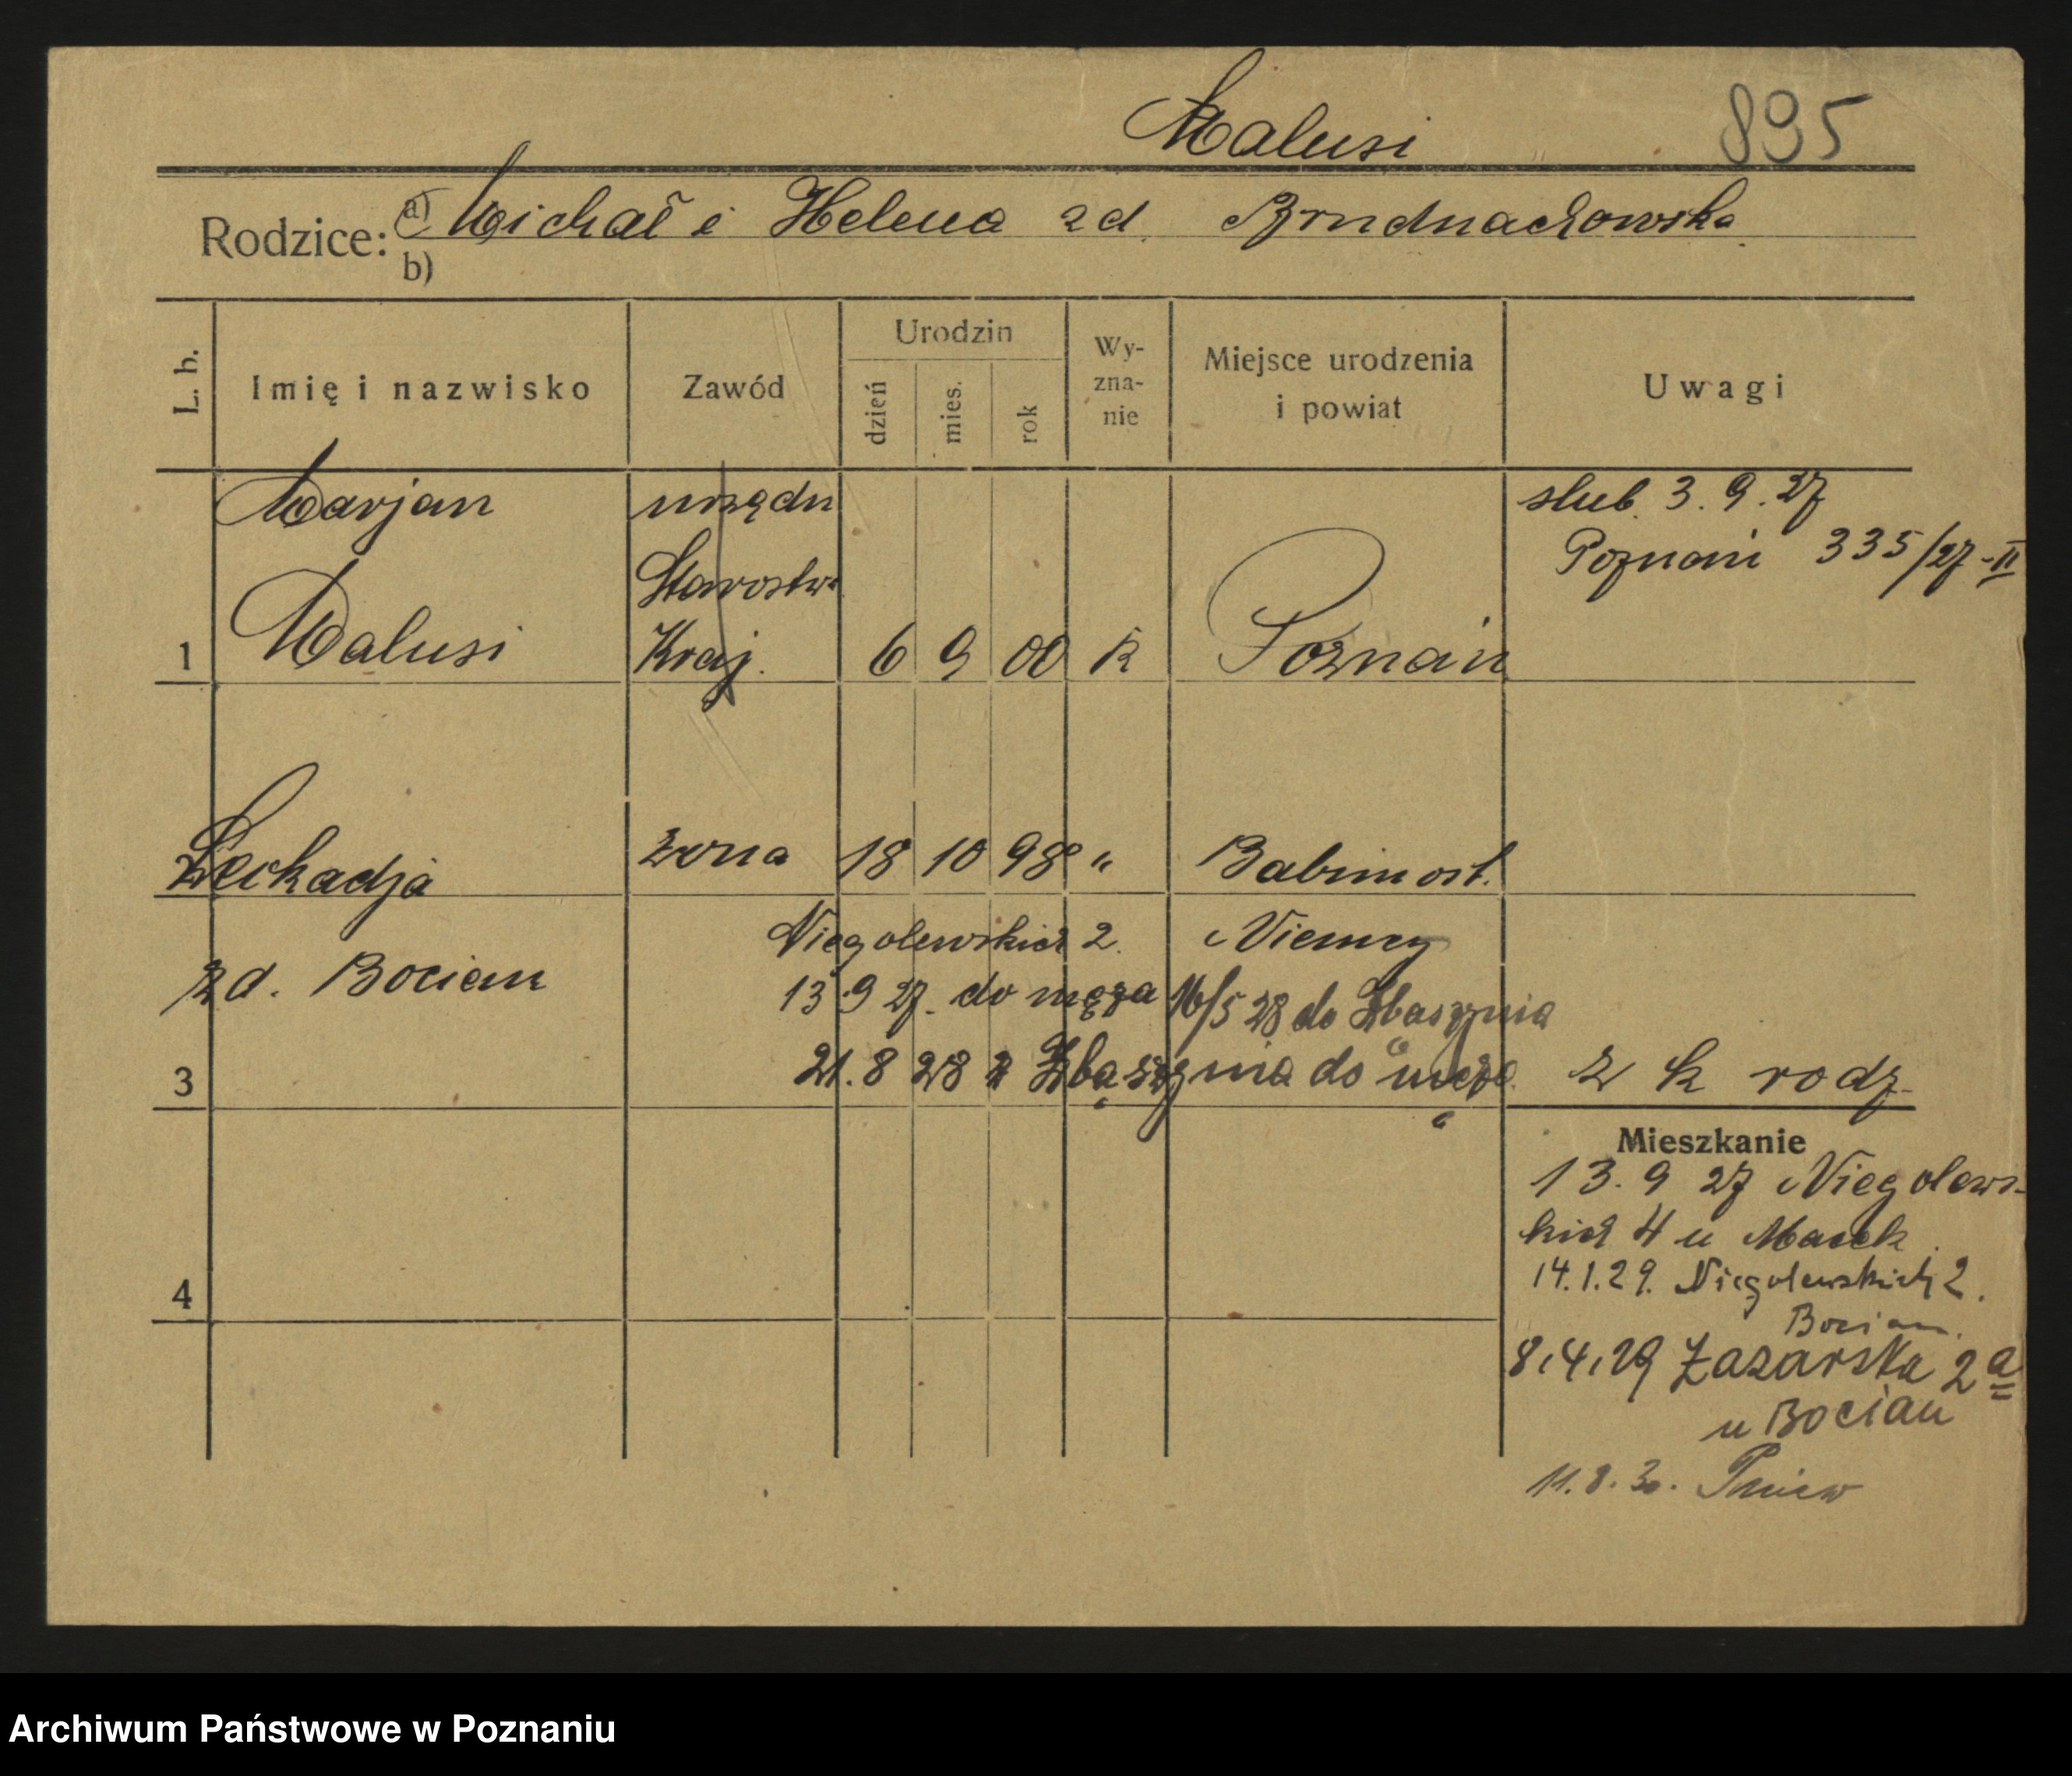 Malusi 895
Rodzice: a) Michał i Helena zd.
b)
L. b.
Imię i nazwisko
Zawód
Urodzin
dzień
mies.
rok
Wy-
zna-
nie
Miejsce urodzenia
i powiat
Uwagi
Marjan
Malusi
urzędn
Starostwa
Kraj.
1
6 9 00 k
Poznań
slub. 3. 9. 27
Poznań 335/27-II
2
Leokadja
żona 18 10 98 "
Babimost.
Niegolewskich 2.
Niemcy
zd. Bocian
13 9 27. do męża 16/5 28 do Zbąszynia
21. 8 28 z Zbąszynia do męża
3
z k rodz.
Mieszkanie
13. 9 27 Niegolews-
kich 4 u Macek
14.1.29. Niegolewskich 2.
Bocian.
4
8,4,29 Łazarska 2a
u Bocian
11. 8. 30. Pniew
Archiwum Państwowe w Poznaniu